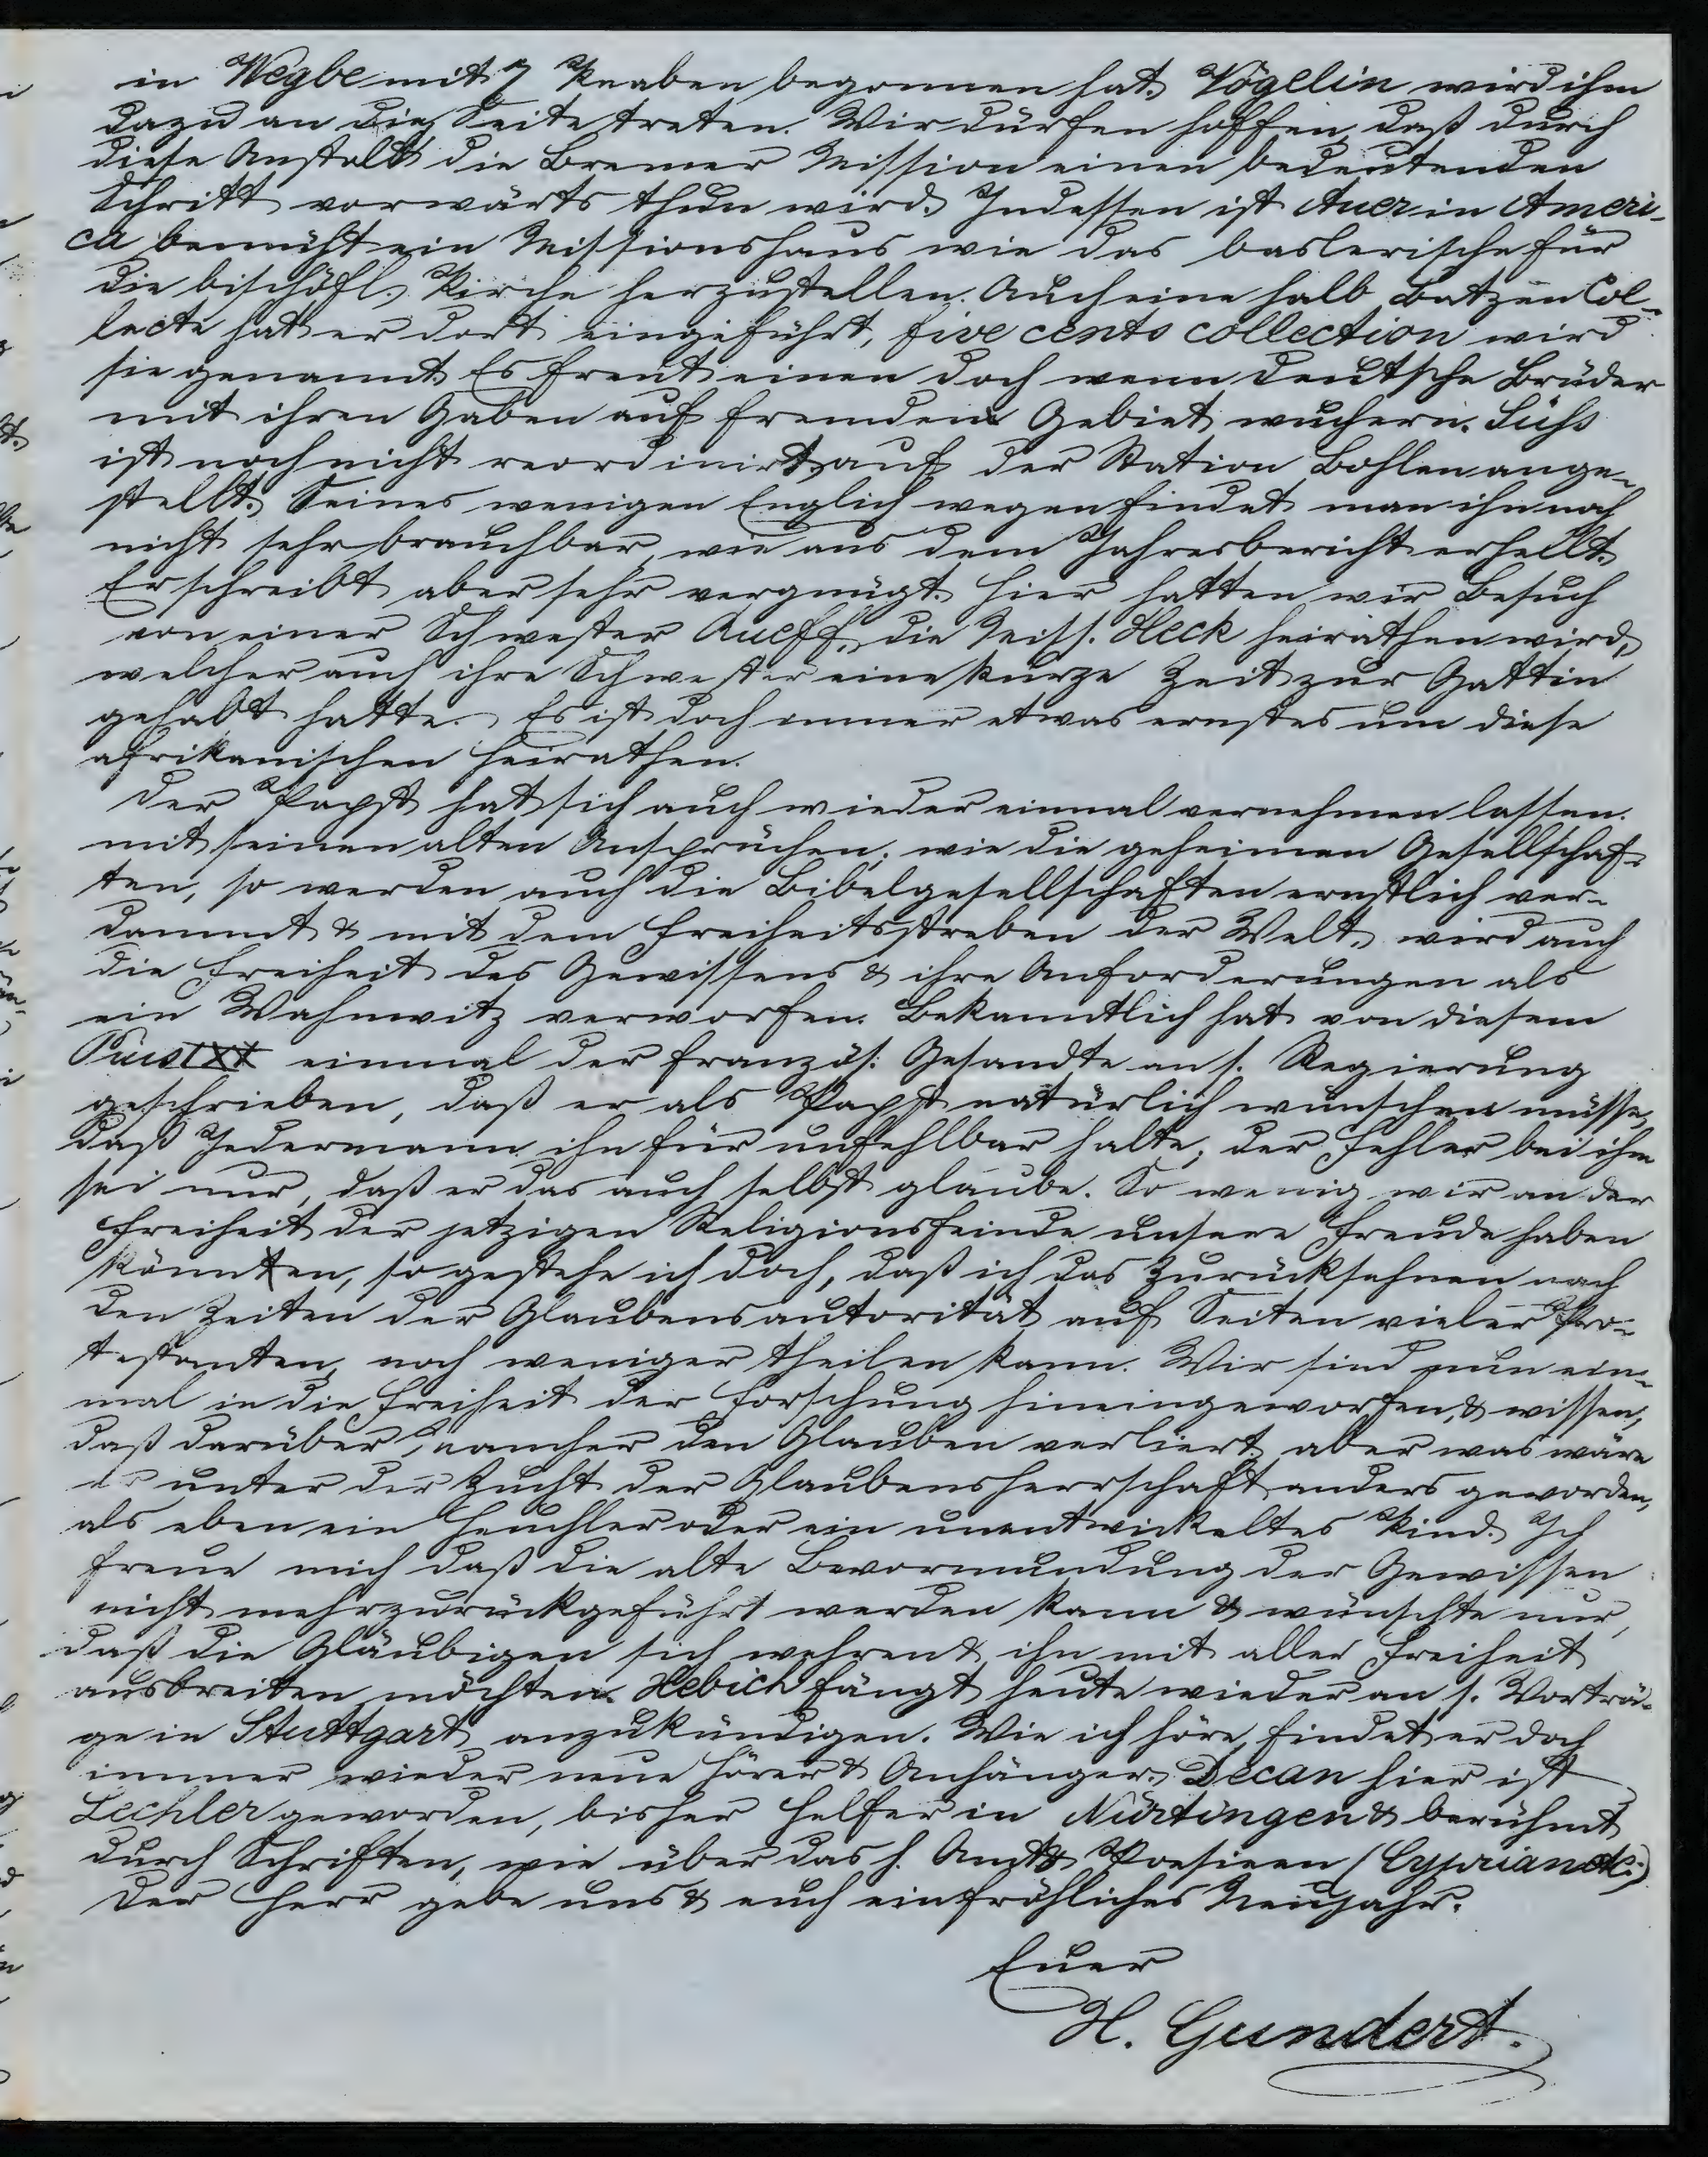 in Wegbe mit 7 Knaben begonnen hat. Vögelin wird ihm
dazu an die Seite treten. Wir dürfen hoffen, daß durch
diese Anstalt die Bremer Mission einen bedeutenden
Schritt vorwärts thun wird. Indessen ist Auer in Ameri-
ca bemüht ein Missionshaus wie das baslerische für
die bischöfl. Kirche herzustellen. Auch eine halb Batzen Col-
lecte hat er dort eingeführt, five cents collection wird
sie genannt. Es freut einen doch wenn deutsche Brüder
mit ihren Gaben auf fremden Gebiet wuchern. Süss
ist noch nicht reordinirt, auf der Station Bohlen ange-
stellt. Seines wenigen Englich wegen findet man ihn noch
nicht sehr brauchbar, wie aus dem Jahresbericht erhellt.
Er schreibt aber sehr vergnügt. Hier hatten wir Besuch
von einer Schwester Rueff, die Miss. Heck heirathen wird,
welcher auch ihre Schwester eine kurze Zeit zur Gattin
gehabt hatte. Es ist doch immer etwas ernstes um diese
afrikanischen Heirathen.
Der Papst hat sich auch wieder einmal vernehmen lassen.
mit seinen alten Ansprüchen; wie die geheimen Gesellschaf-
ten, so werden auch die Bibelgesellschaften ernstlich ver-
dammt & mit dem Freiheitsstreben der Welt, wird auch
die Freiheit des Gewissens & ihre Anforderungen als
ein Wahnwitz verworfen. Bekanntlich hat von diesem
Pius IX einmal der französ: Gesandte an s. Regierung
geschrieben, daß er als Papst natürlich wünschen müsse,
daß Jedermann ihn für unfehlbar halte; der Fehler bei ihm
sei nur, daß er das auch selbst glaube. So wenig wir an der
Freiheit der jetzigen Religionsfeinde unsere Freude haben
könnten, so gestehe ich doch, daß ich das Zurücksehnen nach
den Zeiten der Glaubensautorität auf Seiten vieler Pro-
testanten, noch weniger theilen kann. Wir sind nun ein-
mal in die Freiheit der Forschung hineingeworfen, & wissen,
daß darüber mancher den Glauben verliert, aber was wäre
er unter der Zucht der Glaubensherrschaft anders geworden,
als eben ein Heuchler oder ein unentwickeltes Kind. Ich
freue mich daß die alte Bevormundung der Gewissen
nicht mehr zurückgeführt werden kann & wünschte nur,
daß die Gläubigen sich wehren & ihn mit aller Freiheit
ausbreiten möchten. Hebich fängt heute wieder an s. Vorträ-
ge in Stuttgart anzukündigen. Wie ich höre, findet er doch
immer wieder neue Hörer & Anhänger. Decan hier ist
Lechler geworden, bisher Helfer in Nürtingen & berühmt
durch Schriften, wie über das h. Amt & Poesieen (Cyprian etc.)
Der Herr gebe uns & euch ein fröhliches Neujahr.
Euer
H. Gundert.